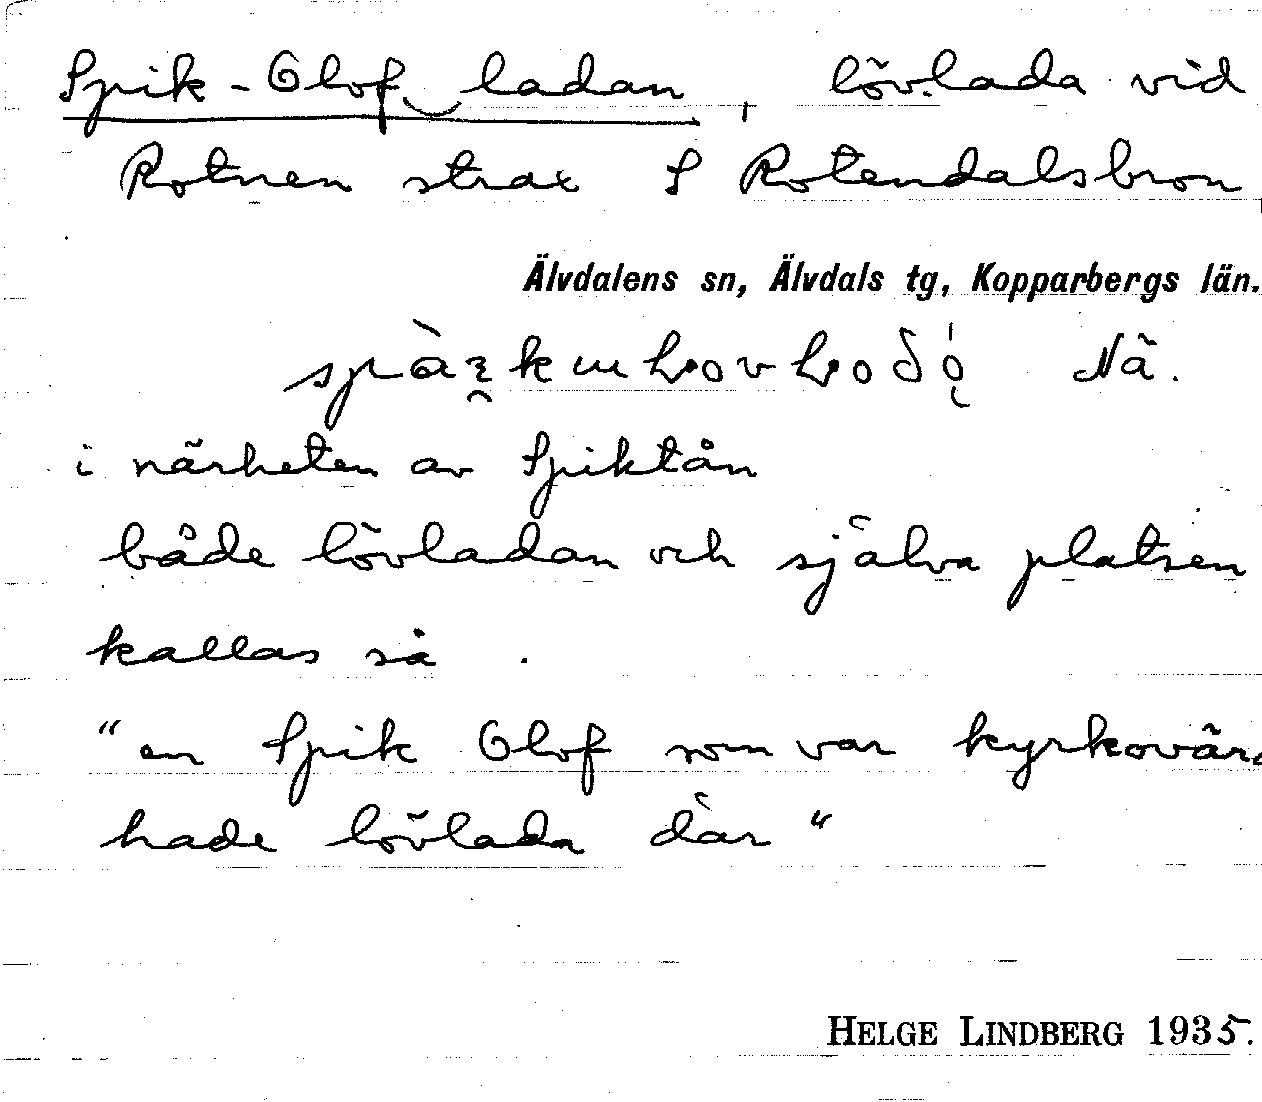 Spik-Olof ladan, lövlada vid
Rotnen strax S Rotendalsbron
Älvdalens sn, Älvdals tg, Kopparbergs län.
Nä.
i närheten av Spiktån
både lövladan och själva platsen
kallas så.
"en Spik Olof som var kyrkovärd
hade lövlada där"
HELGE LINDBERG 1935.